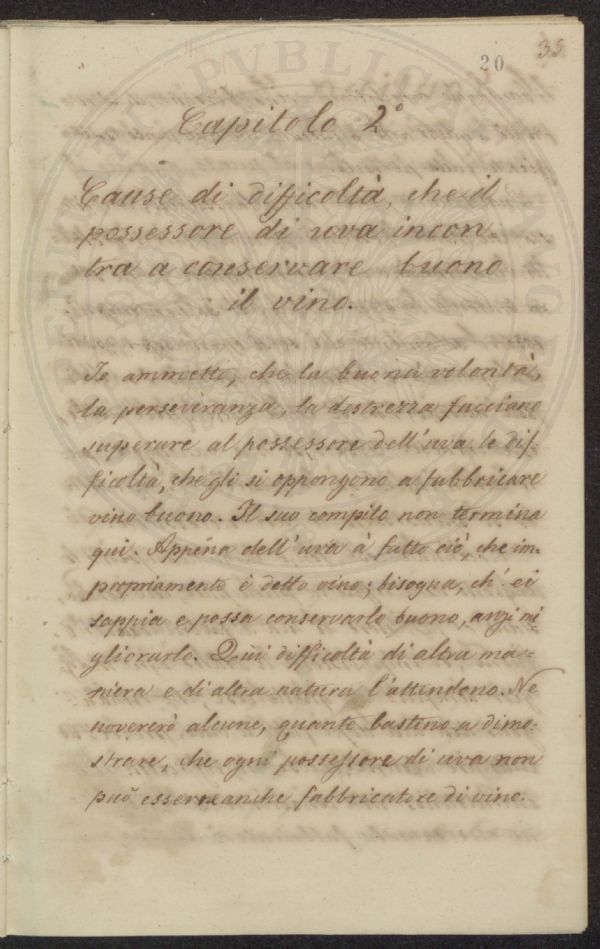 20
35
Capitolo 2°
Cause di difficoltà, che il
possessore di uva incon-
tra a conservare buono
il vino.
Io ammetto, che la buona volontà,
la perseveranza, la destrezza facciano
superare al possessore dell'uva le dif-
ficoltà, che gli si oppongono a fabbricare
vino buono. Il suo compito non termina
qui. Appena dell'uva à fatto ciò, che im-
propriamente è detto vino; bisogna, ch'ei
sappia e possa conservarlo buono, anzi mi-
gliorarlo. Qui difficoltà di altra ma-
niera e di altra natura l'attendono. Ne
novererò alcune, quante bastino a dimo-
strare, che ogni possessore di uva non
può esserneanche fabbricatore di vino.